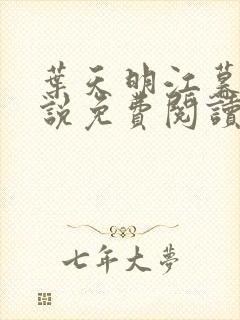 葉天明江慕
說免費閱讀
七年大夢